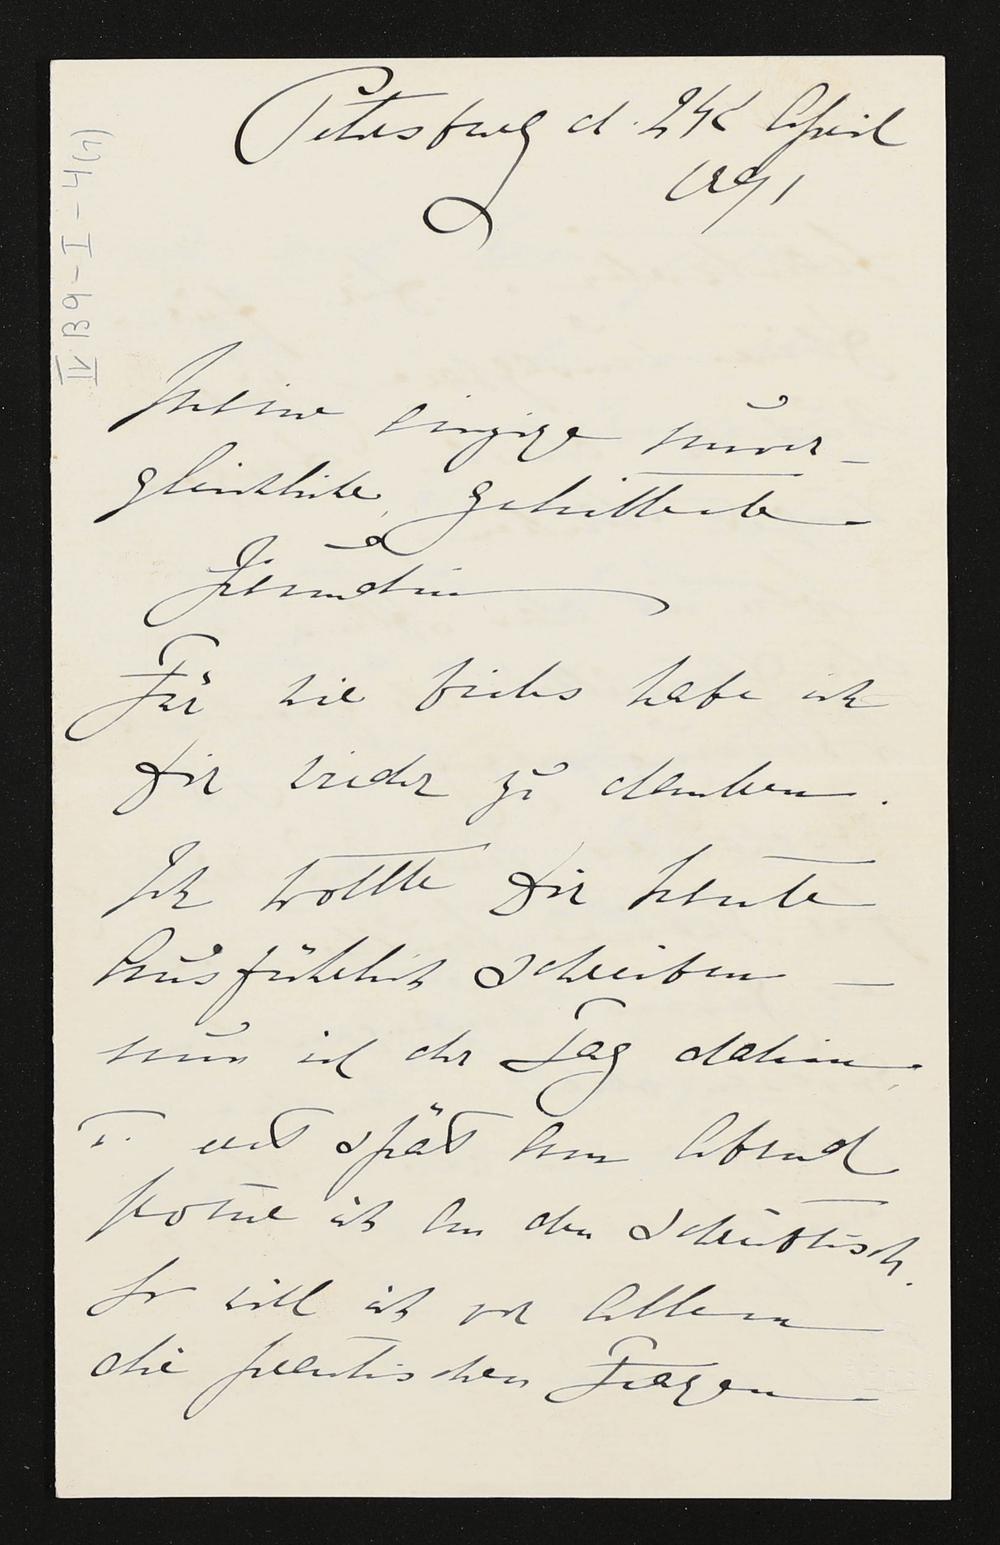 Petersburg d. 24 April
1891
IV B9-I-4(7)
Meine einzige unver-
gleichliche, geliebteste
Freundin
Für wie vieles habe ich
Dir wieder zu danken.
Ich wollte Dir heute
ausführlich schreiben —
nun ist der Tag dahin,
u. erst spät am Abend
komme ich an den Schreibtisch.
So will ich vor Allem
die praktischen Fragen